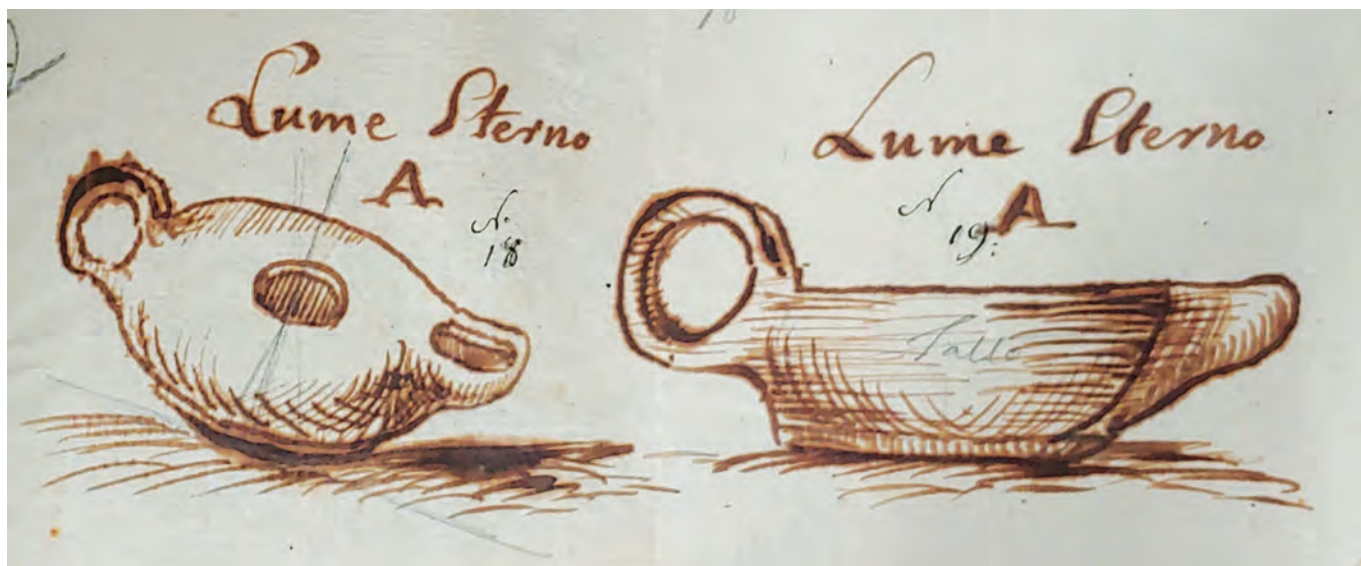 Lume Eterno
A
N.
18
Lume Eterno
A
N
19:
Fatto